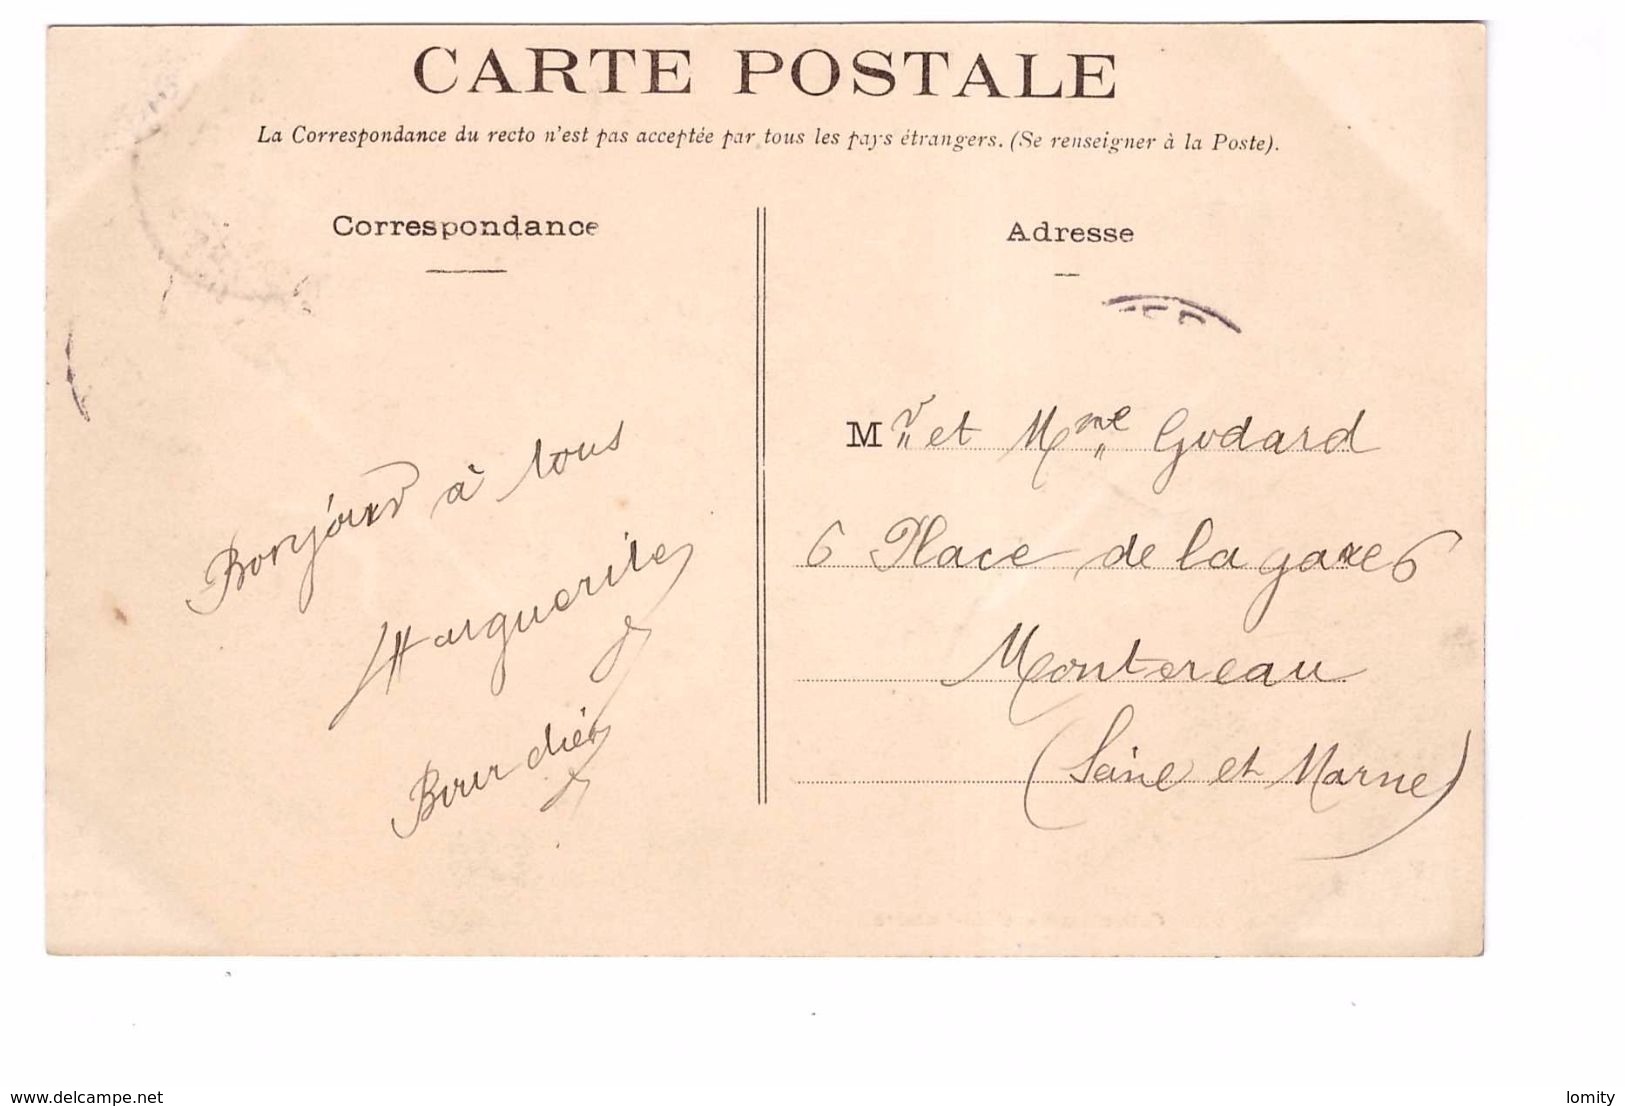 CARTE POSTALE
La Correspondance du recto n'est pas acceptée par tous les pays étrangers. (Se renseigner à la Poste).
Correspondance
Bonjour à tous
Marguerite
Bourdier
Adresse
Mr et Mme Godard
6 Place de la gare 6
Montereau
(Seine et Marne)
www.delcampe.net
lomity